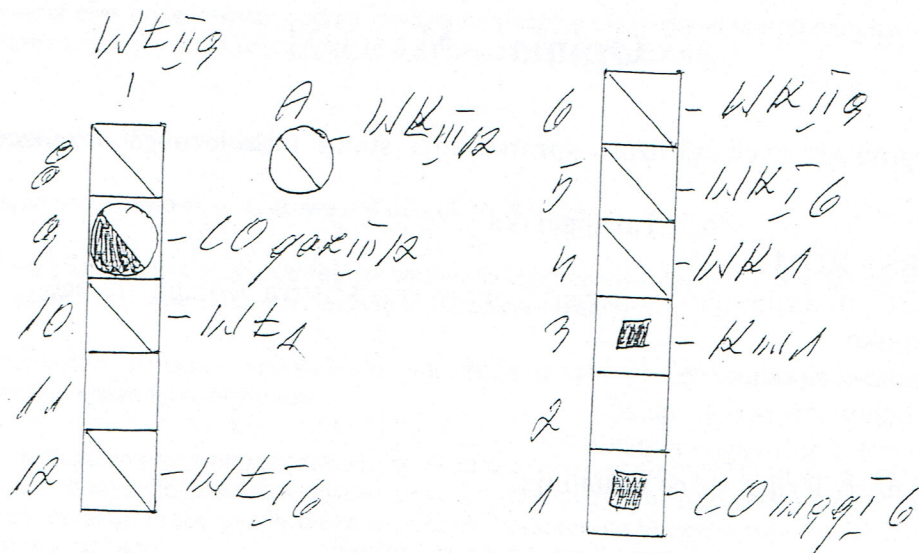 WŁ II 9
8
9 - CO gaz III 12
10 - WŁ 1
11
12 - WŁ I 6
A - WK III 12
6 - WK II 9
5 - WK I 6
4 - WK 1
3
2
1 - CO I 6